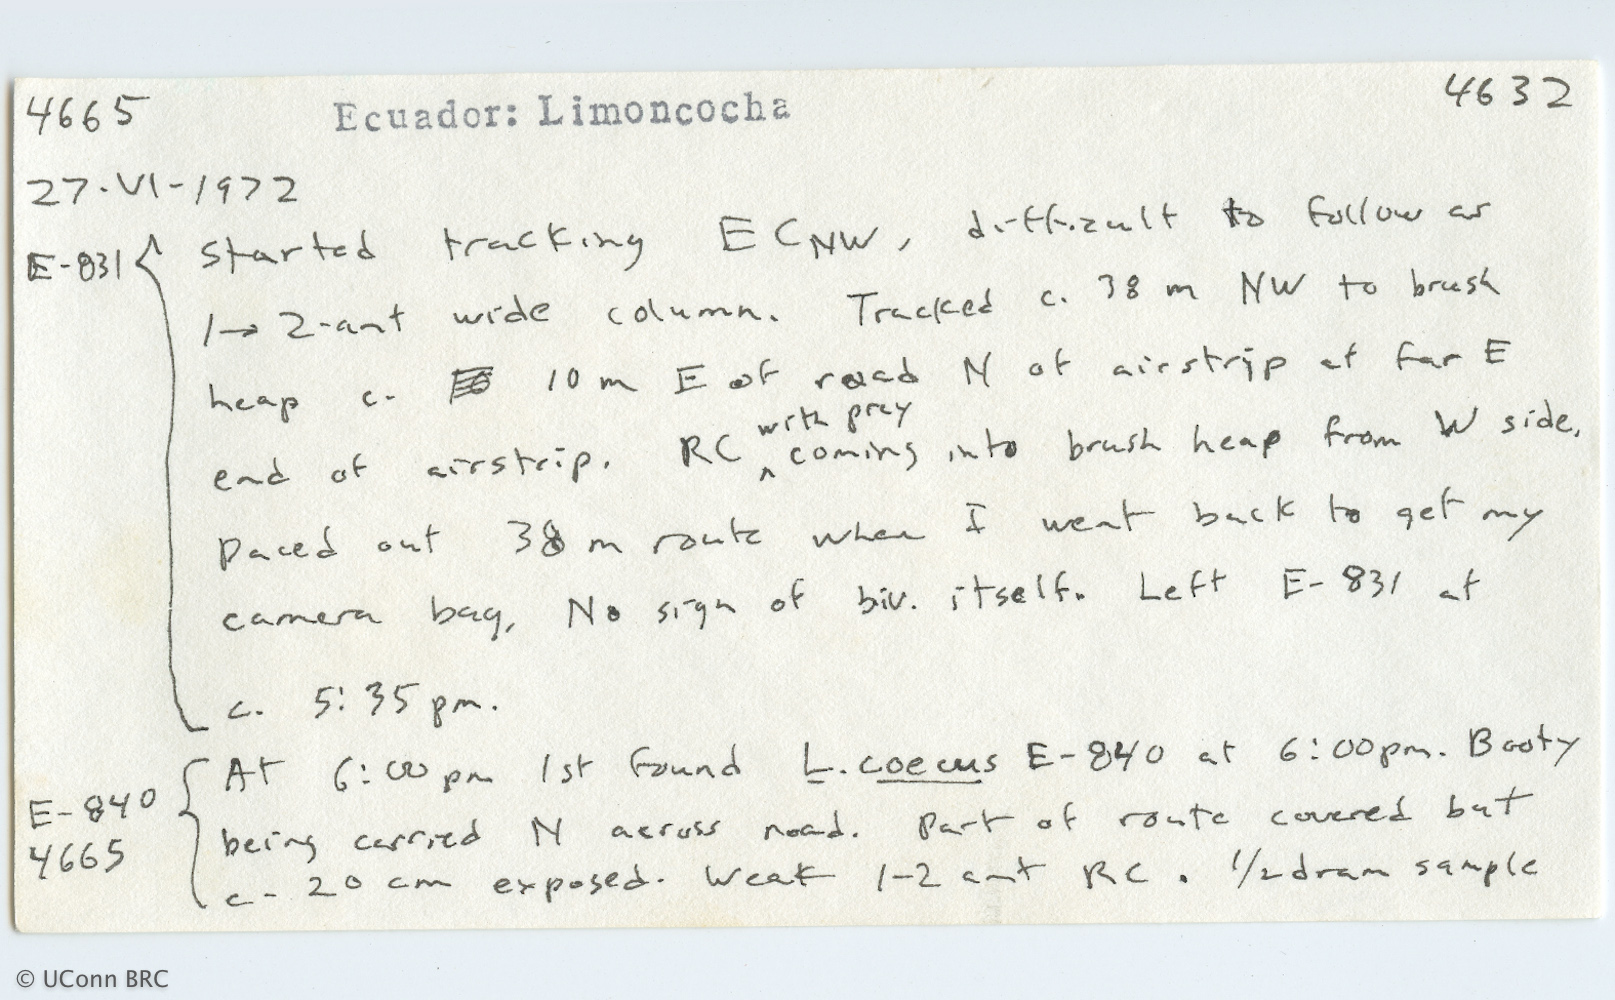 4665 Ecuador: Limoncocha 4632
27·VI-1972
E-831 Started tracking ECNW, difficult to follow as
1→2-ant wide column. Tracked c. 38 m NW to brush
heap c. 10 m E of road N of airstrip at far E
end of airstrip. RC ^ with prey coming into brush heap from W side.
Paced out 38 m route when I went back to get my
camera bag, No sign of biv. itself. Left E-831 at
c. 5:35 pm.
At 6:00 pm 1st found L. coecus E-840 at 6:00 pm. Booty
E-840 being carried N across road. Part of route covered but
4665 c. 20 cm exposed. Weak 1-2 ant RC. 1/2 dram sample
© UConn BRC